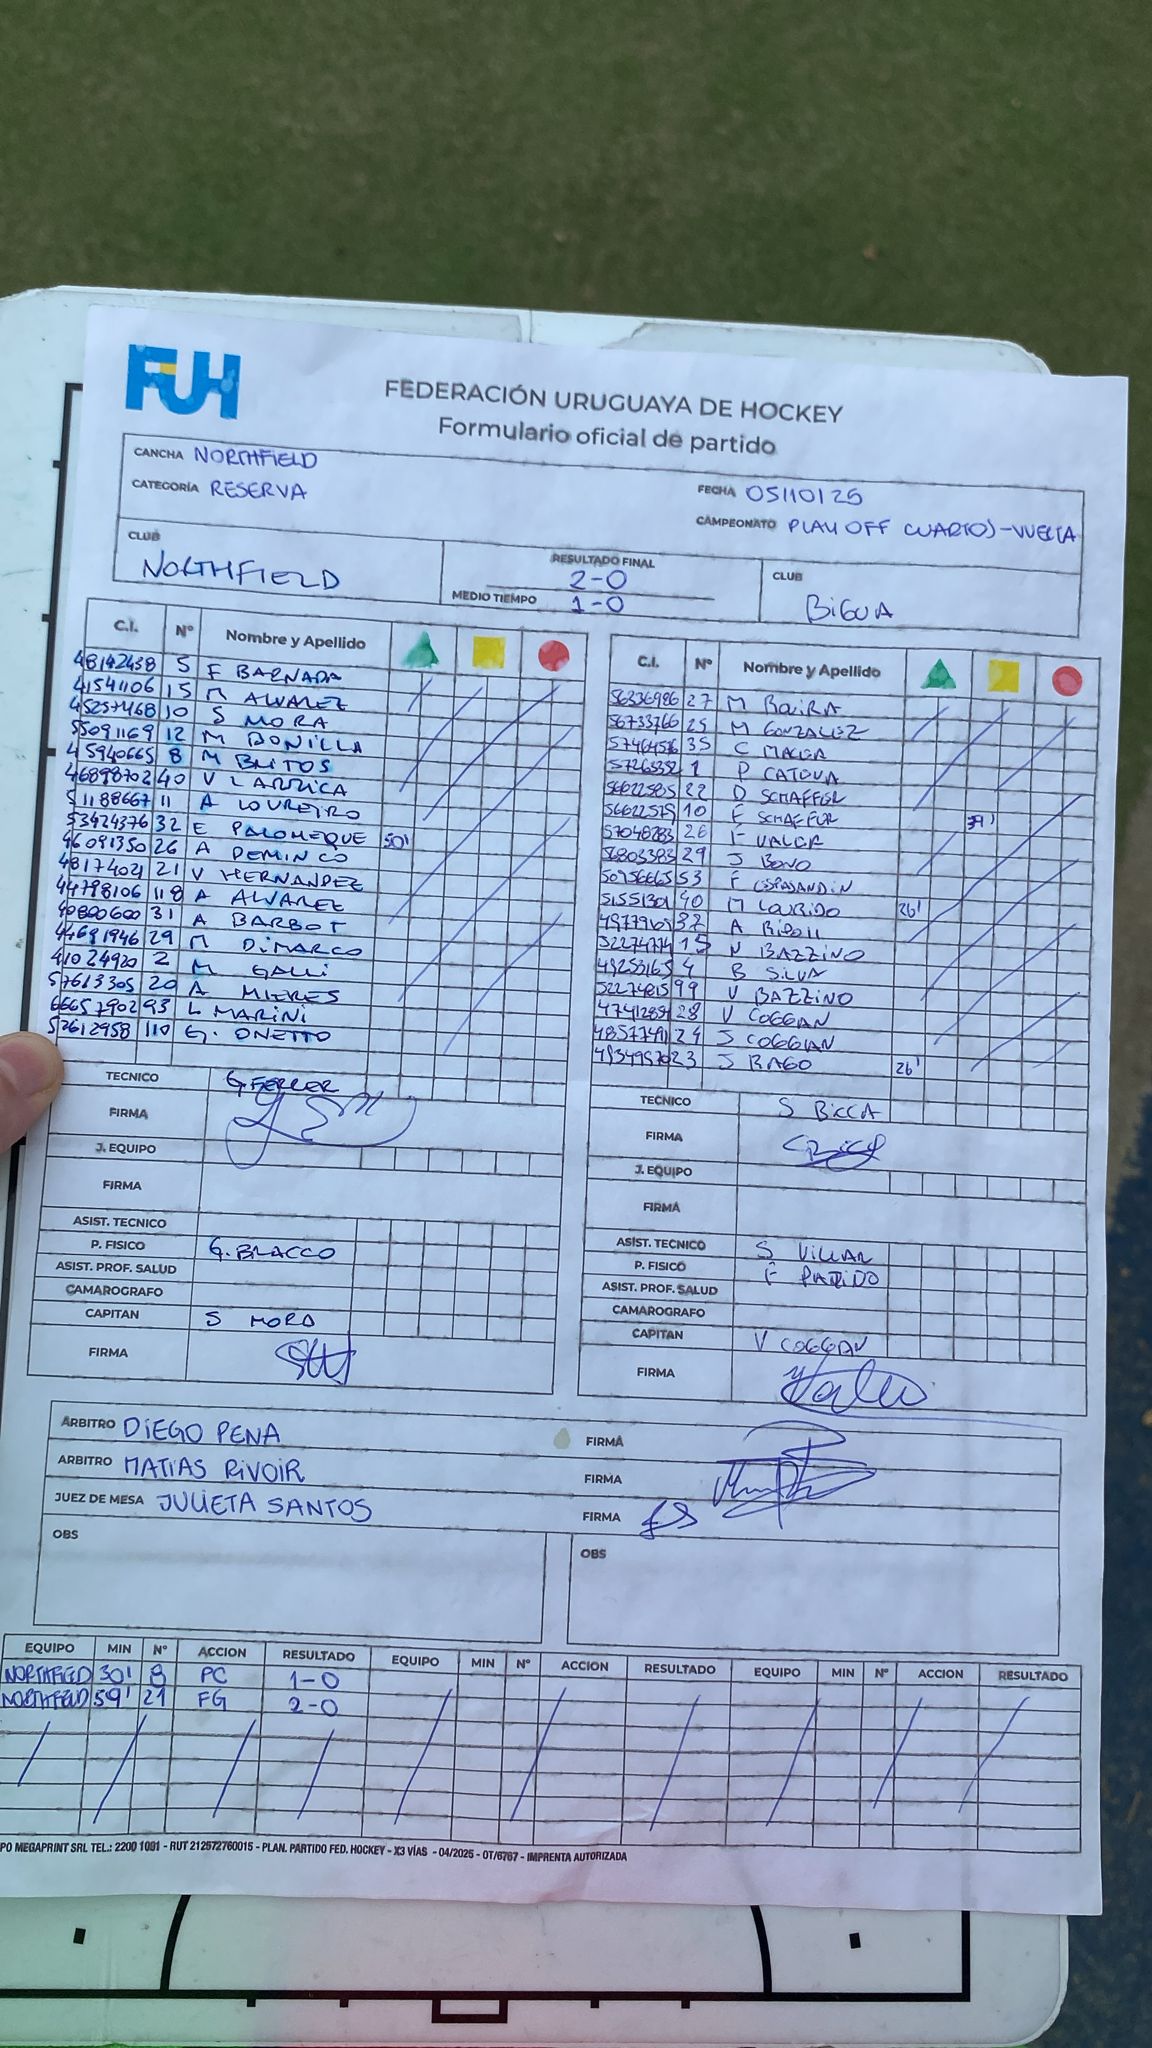 FUH
FEDERACIÓN URUGUAYA DE HOCKEY
Formulario oficial de partido
CANCHA NORTHFIELD
CATEGORÍA RESERVA
FECHA 05/10/25
CAMPEONATO PLAY OFF CUARTOS-VUELTA
CLUB NORTHFIELD
RESULTADO FINAL 2-0
MEDIO TIEMPO 1-0
CLUB BIGUA
C.I. Nº Nombre y Apellido
48142438 5 F BARNADA
41541106 15 M ALVAREZ
45257468 10 S MORA
55091169 12 M BONILLA
45940665 8 M BRITOS
46898702 40 V LARRICA
51188667 11 A LOUREIRO
53424376 32 E PALOMEQUE 50'
46091350 26 A DEMINCO
48174021 21 V HERNANDEZ
44798106 118 A ALVAREZ
40800600 31 A BARBOT
44691946 29 M DIMARCO
41024920 2 M GALLI
57613305 20 A MIERES
66657902 93 L MARINI
52612958 110 G. ONETTO
TECNICO G. FERRER
FIRMA
J. EQUIPO
FIRMA
ASIST. TECNICO
P. FISICO G. BRACCO
ASIST. PROF. SALUD
CAMAROGRAFO
CAPITAN S MORA
FIRMA
C.I. Nº Nombre y Apellido
56336986 27 M
56733766 25 M GONZALEZ
35 C
1 P
22 D SCHAFFER
10 E SCHAFFER 39'
26 F
56803383 29 J BONO
53 F ESPASANDIN
51551301 40 M LOURIDO 26'
32 A RIPOLL
15 N BAZZINO
49253165 4 B SILVA
99 V BAZZINO
28 V COGGAN
24 J COGGAN
23 J RAGO 26'
TECNICO S BICCA
FIRMA
J. EQUIPO
FIRMA
ASIST. TECNICO S VILLAR
P. FISICO F PARIDO
ASIST. PROF. SALUD
CAMAROGRAFO
CAPITAN V COGGAN
FIRMA
ÁRBITRO DIEGO PENA FIRMA
ARBITRO MATIAS RIVOIR FIRMA
JUEZ DE MESA JULIETA SANTOS FIRMA
OBS
OBS
EQUIPO MIN Nº ACCION RESULTADO EQUIPO MIN Nº ACCION RESULTADO EQUIPO MIN Nº ACCION RESULTADO
NORTHFIELD 30' 8 PC 1-0
NORTHFIELD 59' 21 FG 2-0
PO MEGAPRINT SRL TEL.: 2200 1091 - RUT 212572760015 - PLAN. PARTIDO FED. HOCKEY - X3 VÍAS - 04/2025 - OT/6767 - IMPRENTA AUTORIZADA